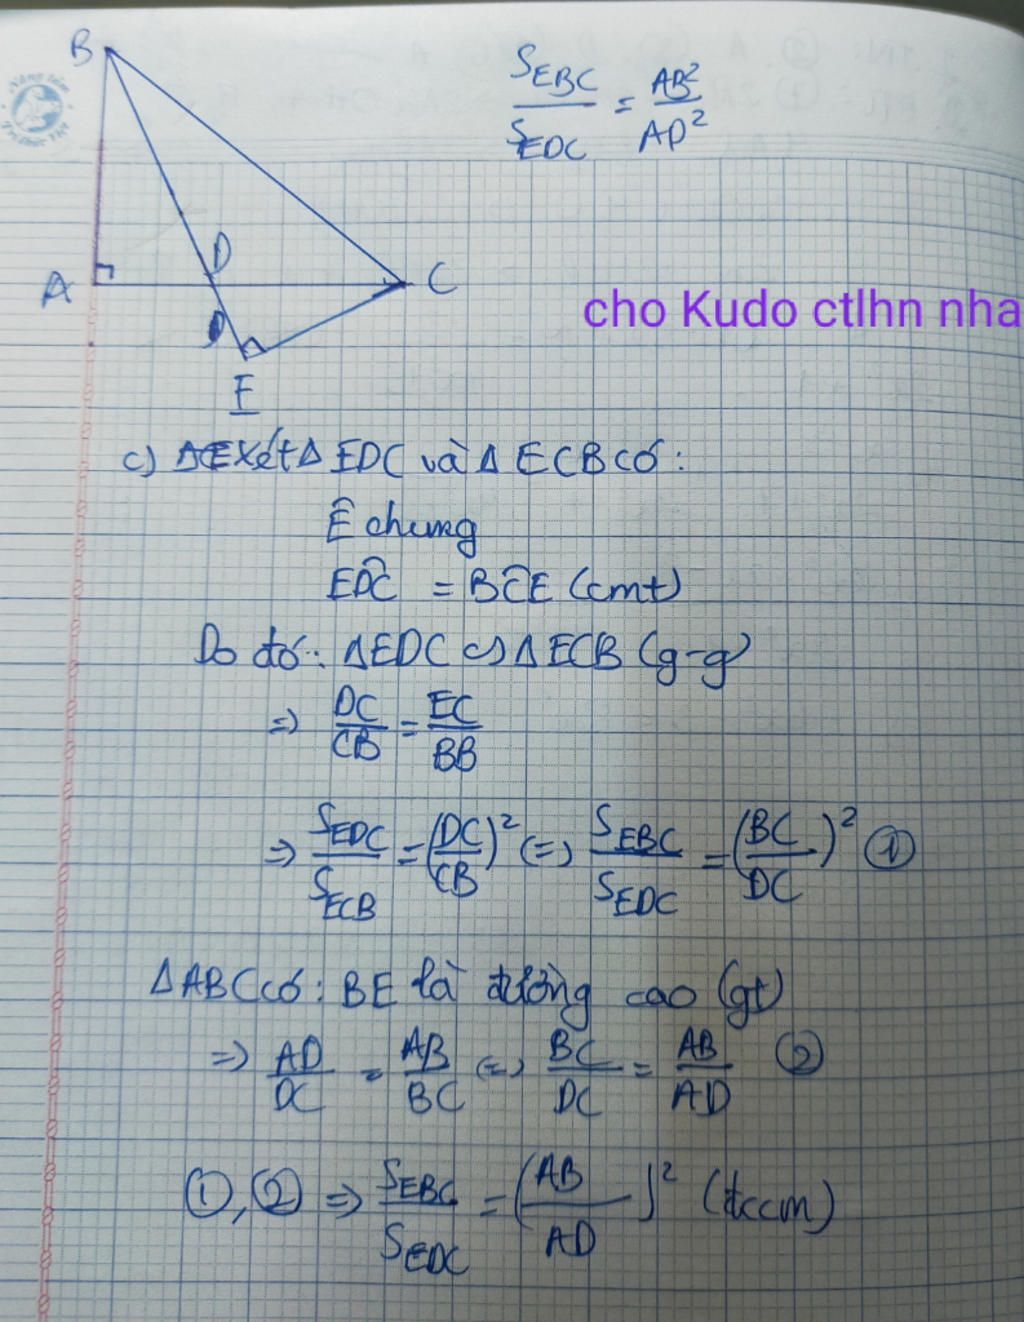 B
S_EBC / S_EDC = AB² / AD²
D
A
C
cho Kudo ctlhn nha
E
c) Xét Δ EDC và Δ ECB có:
Ê chung
EDC = BCE (cmt)
Do đó: ΔEDC ∽ ΔECB (g-g)
=> DC/CB = EC/BB
=> S_EDC / S_ECB = (DC/CB)² (=) S_EBC / S_EDC = (BC/DC)² ①
ΔABC có: BE là đường cao (gt)
=> AD/DC = AB/BC (=) BC/DC = AB/AD ②
①, ② => S_EBC / S_EDC = (AB/AD)² (đccm)